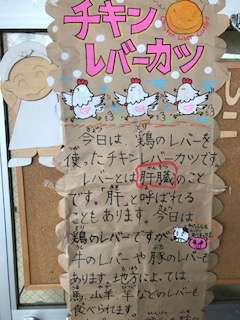 チキン
レバーカツ
今日は、鶏のレバーを
使ったチキンレバーカツです。
レバーとは肝臓のこと
です。「肝」と呼ばれる
こともあります。今日は
鶏のレバーですが
牛のレバーや豚のレバーも
あります。地方によっては
馬、山羊、羊などのレバーも
食べられます。